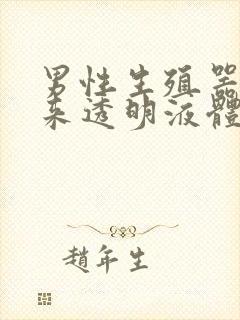 男性生殖器
来透明液體
趙年生